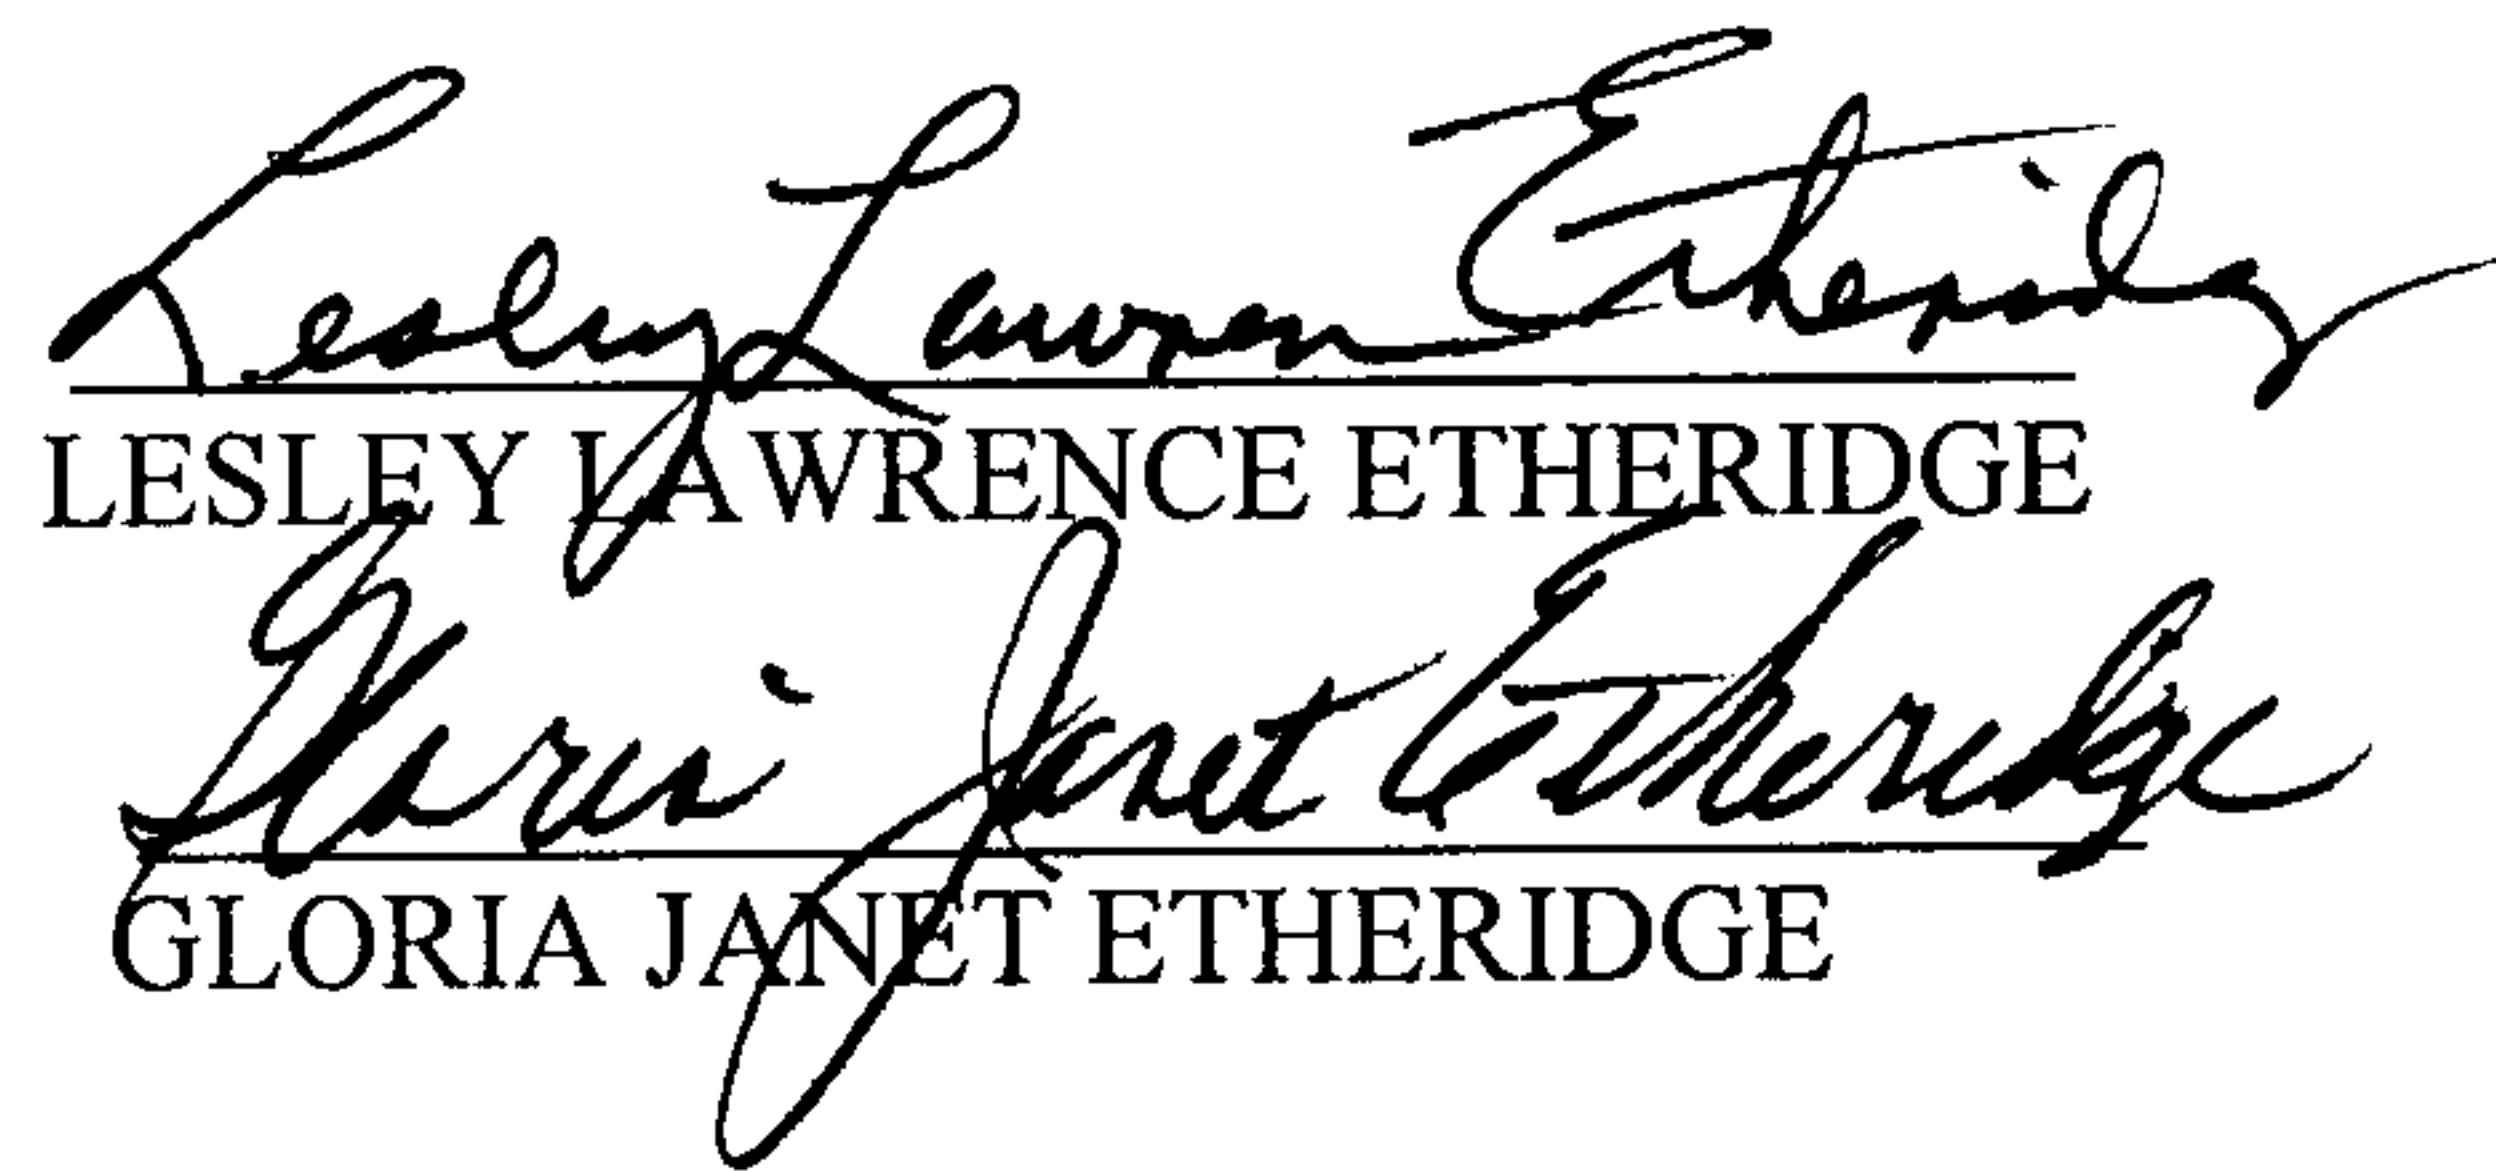 Lesley Lawrence Etheridge
LESLEY LAWRENCE ETHERIDGE
Gloria Janet Etheridge
GLORIA JANET ETHERIDGE